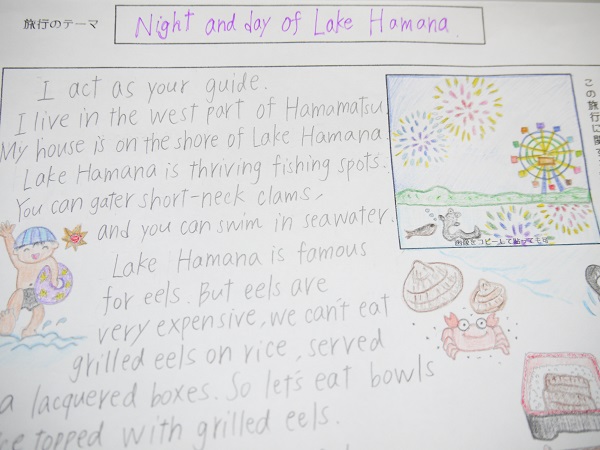 旅行のテーマ
Night and day of Lake Hamana
I act as your guide.
I live in the west part of Hamamatsu
My house is on the shore of Lake Hamana
Lake Hamana is thriving fishing spots.
You can gater short-neck clams,
and you can swim in seawater.
Lake Hamana is famous
for eels. But eels are
very expensive, we can't eat
grilled eels on rice, served
a lacquered boxes. So let's eat bowls
topped with grilled eels.
この旅行に関